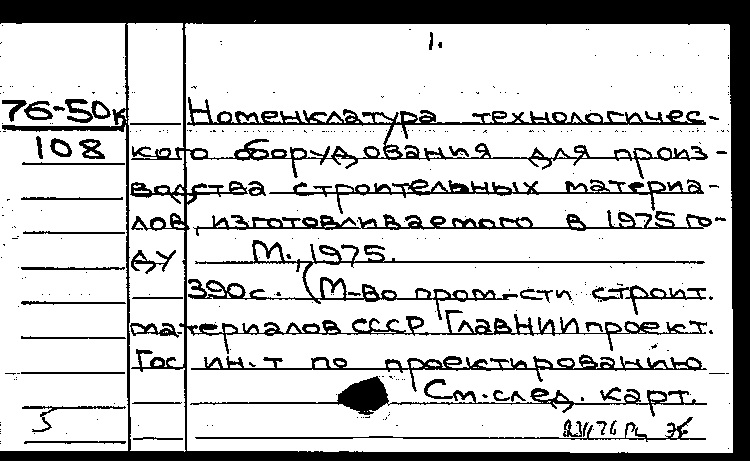 1.
76-50к
108
Номенклатура технологичес-
кого оборудования для произ-
водства строительных материа-
лов, изготовливаемого в 1975 го-
ду. М., 1975.
390с. (М-во пром-сти строит.
материалов СССР. ГлавНИИпроект.
Гос ин-т по проектированию
См. след. карт.
5